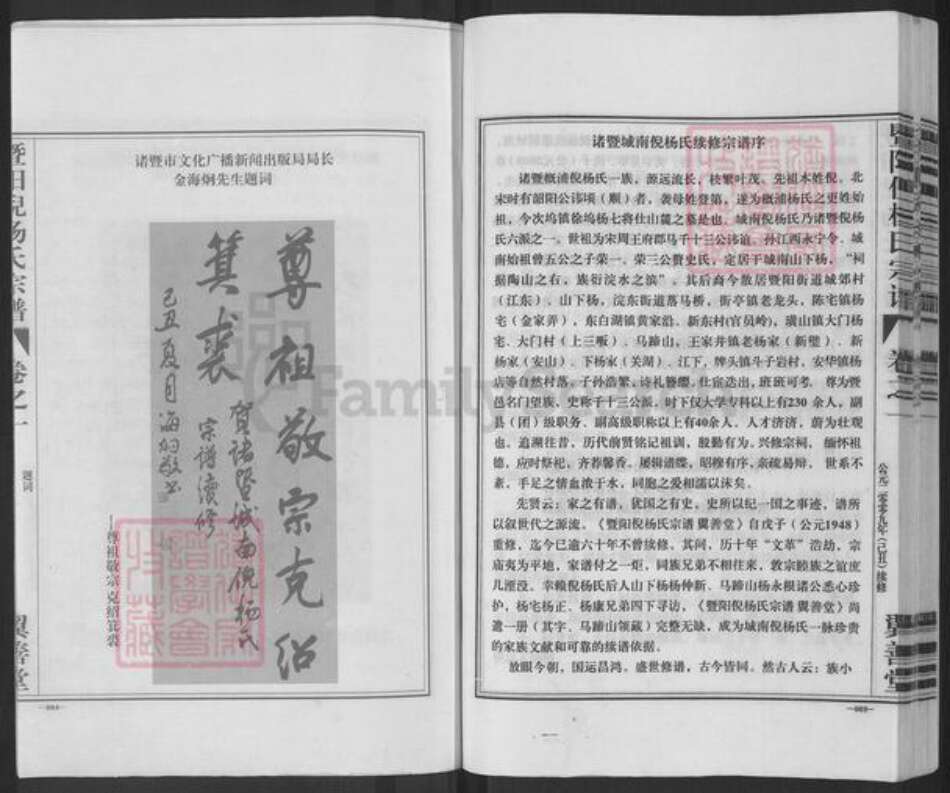 暨阳倪杨氏宗谱
卷之一
题词
翼善堂
诸暨市文化广播新闻出版局局长
金海炯先生题词
尊祖敬宗克绍
箕裘
贺诸暨城南倪杨氏
宗谱续修
己丑夏月海炯敬书
——尊祖敬宗 克绍箕裘
诸暨城南倪杨氏续修宗谱序
诸暨概浦倪杨氏一族,源远流长,枝繁叶茂。先祖本姓倪。北
宋时有韶阳公讳顷(顺)者,袭母姓登第,遂为概浦杨氏之更姓始
祖,今次坞镇徐坞杨七将仕山麓之墓是也。城南倪杨氏乃诸暨倪杨
氏六派之一。世祖为宋周王府郡马千十三公讳谊、孙江西永宁令、城
南始祖曾五公之子荣一、荣三公赘史氏,定居于城南山下杨,“祠
据陶山之右,族衍浣水之滨”。其后裔今散居暨阳街道城郊村
(江东)、山下杨,浣东街道落马桥,街亭镇老龙头,陈宅镇杨
宅(金家弄),东白湖镇黄家沿、新东村(官员岭),璜山镇大门杨
宅、大门村(上三畈)、马蹄山,王家井镇老杨家(新壁)、新
杨家(安山)、下杨家(关湖)、江下,牌头镇斗子岩村,安华镇杨
店等自然村落。子孙浩繁,诗礼簪缨。仕宦迭出,班班可考。尊为暨
邑名门望族,史称千十三公派。时下仅大学专科以上有230 余人,副
县(团)级职务、副高级职称以上有40余人。人才济济,蔚为壮观
也。追溯往昔,历代前贤铭记祖训,殷勤有为。兴修宗祠, 缅怀祖
德,应时祭祀,齐荐馨香。屡辑谱牒,昭穆有序,亲疏易辩, 世系不
紊,手足之情血浓于水,同胞之爱相濡以沫矣。
先贤云:家之有谱,犹国之有史。史所以纪一国之事迹,谱所
以叙世代之源流。《暨阳倪杨氏宗谱 翼善堂》自戊子(公元1948)
重修,迄今已逾六十年不曾续修。其间,历十年“文革”浩劫,宗
庙夷为平地,家谱付之一炬,同族兄弟不相往来,敦宗睦族之谊庶
几湮没。幸赖倪杨氏后人山下杨杨仲新、马蹄山杨永根诸公悉心珍
护,杨宅杨正、杨康兄弟四下寻访,《暨阳倪杨氏宗谱 翼善堂》尚
遗一册(其字,马蹄山领藏)完整无缺,成为城南倪杨氏一脉珍贵
的家族文献和可靠的续谱依据。
放眼今朝,国运昌鸿。盛世修谱,古今皆同。然古人云:族小
暨阳倪杨氏宗谱
卷之一
公元二零零九年(己丑)续修
翼善堂